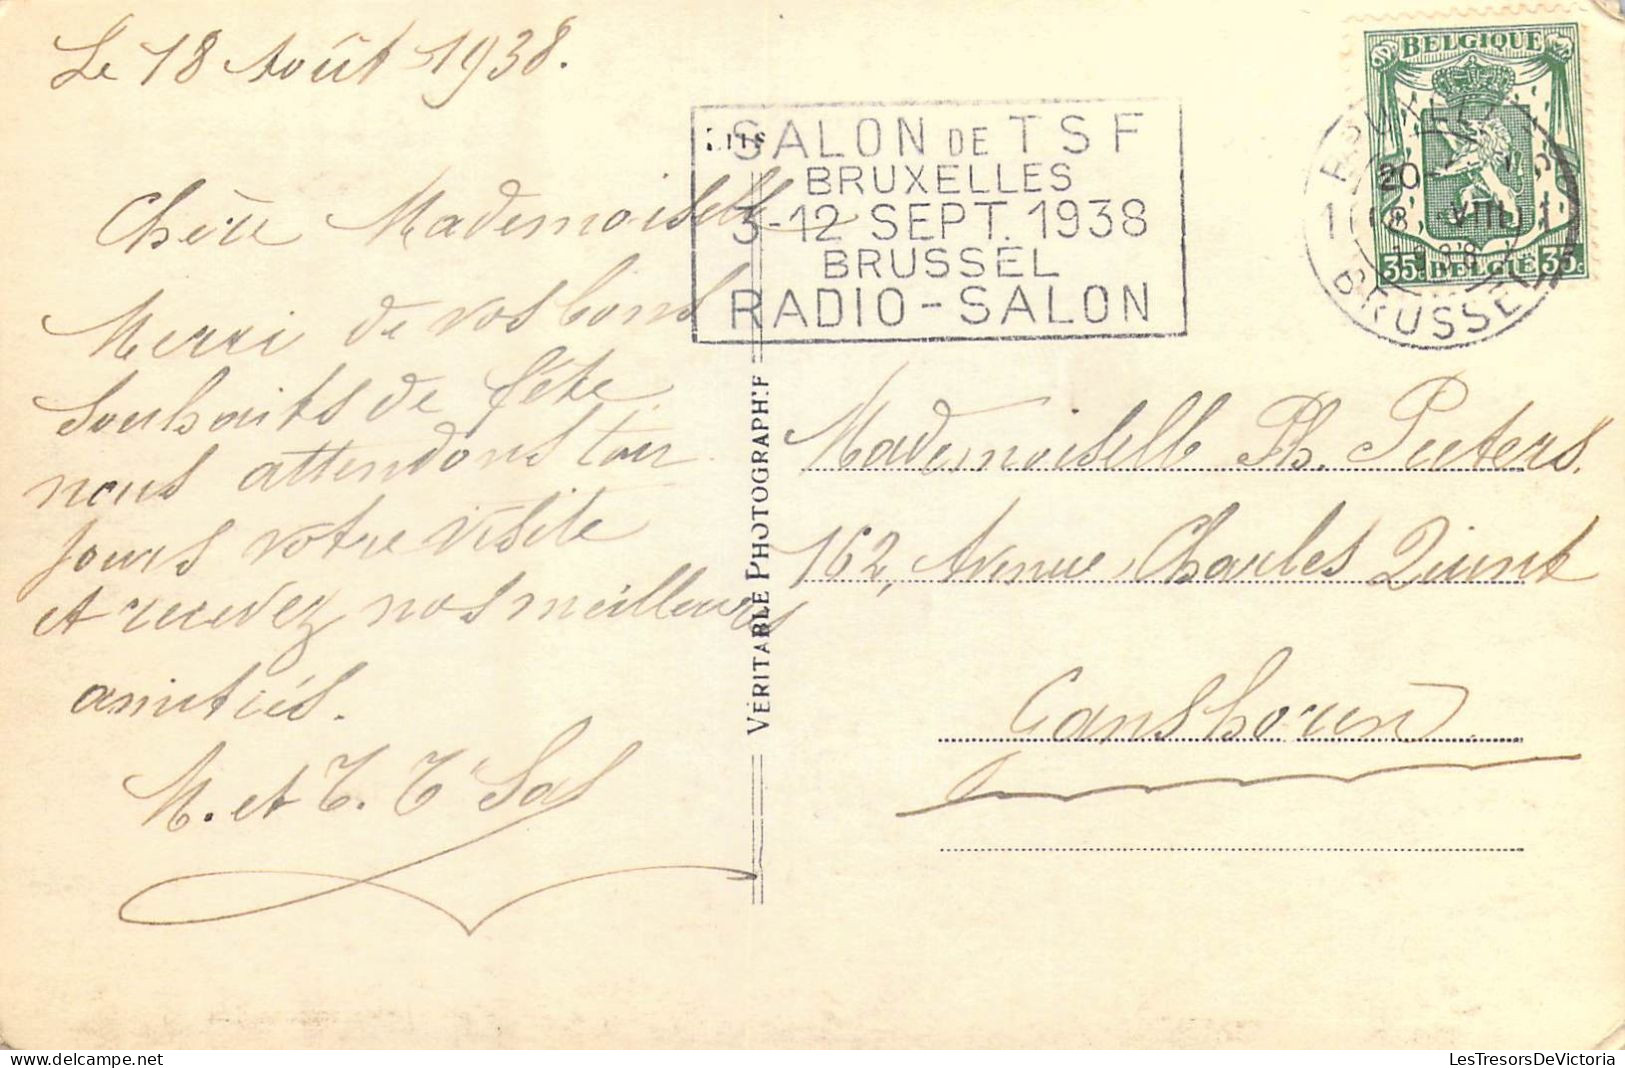 Le 18 Août 1938.
Chère Mademoiselle
Merci de vos bons
souhaits de fête
nous attendons tou
jours votre visite
et recevez nos meilleurs
amitiés.
M. et T. T' Sas
SALON DE TSF
BRUXELLES
3-12 SEPT. 1938
BRUSSEL
RADIO-SALON
BELGIQUE
35c BELGIË 35c
BRUXELLES
20
18 VIII
1938
BRUSSEL
VÉRITABLE PHOTOGRAPHIE
Mademoiselle Ph. Peeters.
162, Avenue Charles Quint
Ganshoren
LesTresorsDeVictoria